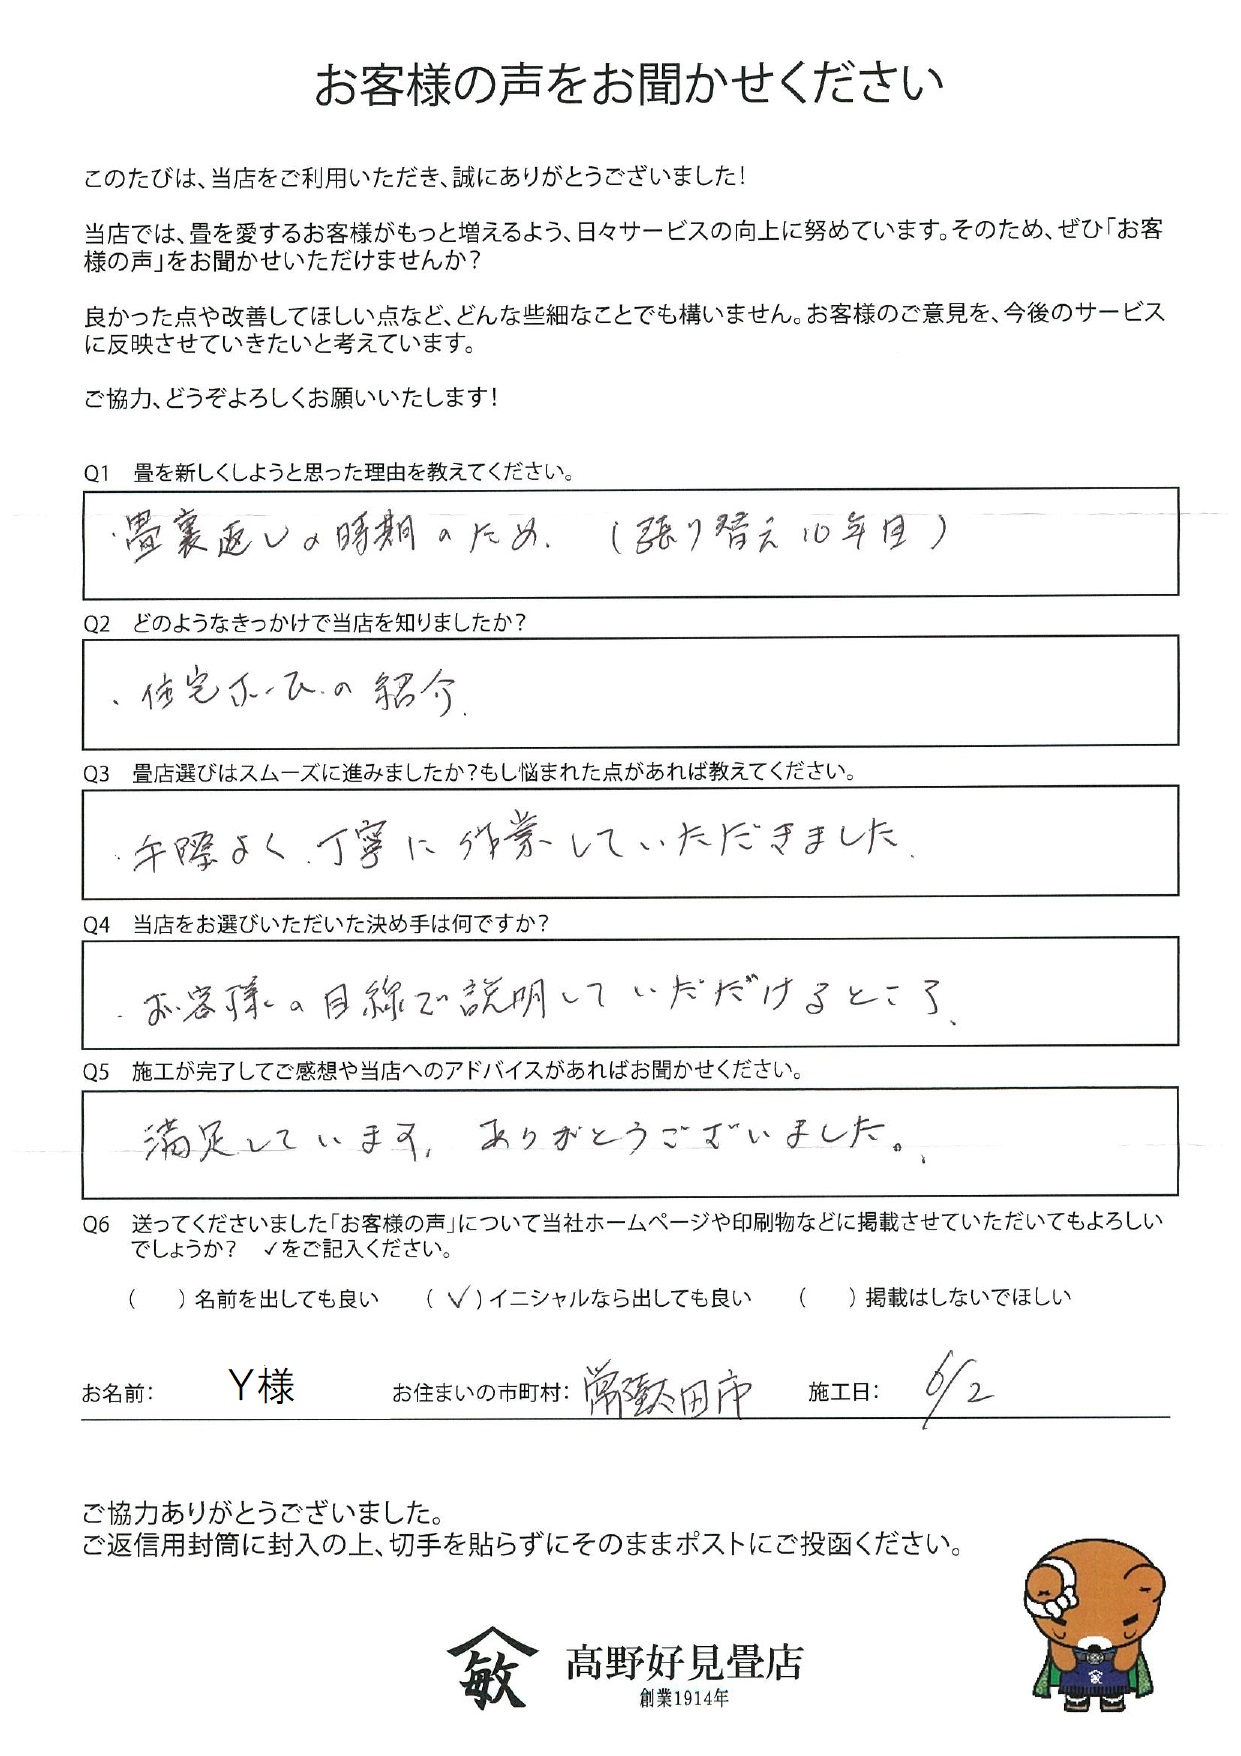 お客様の声をお聞かせください
このたびは、当店をご利用いただき、誠にありがとうございました!
当店では、畳を愛するお客様がもっと増えるよう、日々サービスの向上に努めています。そのため、ぜひ「お客
様の声」をお聞かせいただけませんか?
良かった点や改善してほしい点など、どんな些細なことでも構いません。お客様のご意見を、今後のサービス
に反映させていきたいと考えています。
ご協力、どうぞよろしくお願いいたします!
Q1 畳を新しくしようと思った理由を教えてください。
・畳裏返しの時期のため. (張り替え10年目)
Q2 どのようなきっかけで当店を知りましたか?
・住宅ホームの紹介.
Q3 畳店選びはスムーズに進みましたか?もし悩まれた点があれば教えてください。
・手際よく、丁寧に作業していただきました.
Q4 当店をお選びいただいた決め手は何ですか?
・お客様の目線で説明していただけるところ、
Q5 施工が完了してご感想や当店へのアドバイスがあればお聞かせください。
満足しています, ありがとうございました。
Q6 送ってくださいました「お客様の声」について当社ホームページや印刷物などに掲載させていただいてもよろしい
でしょうか? ✓をご記入ください。
( ) 名前を出しても良い (✓) イニシャルなら出しても良い ( ) 掲載はしないでほしい
お名前: Y様 お住まいの市町村: 常陸太田市 施工日: 6/2
ご協力ありがとうございました。
ご返信用封筒に封入の上、切手を貼らずにそのままポストにご投函ください。
敏 髙野好見畳店
創業1914年